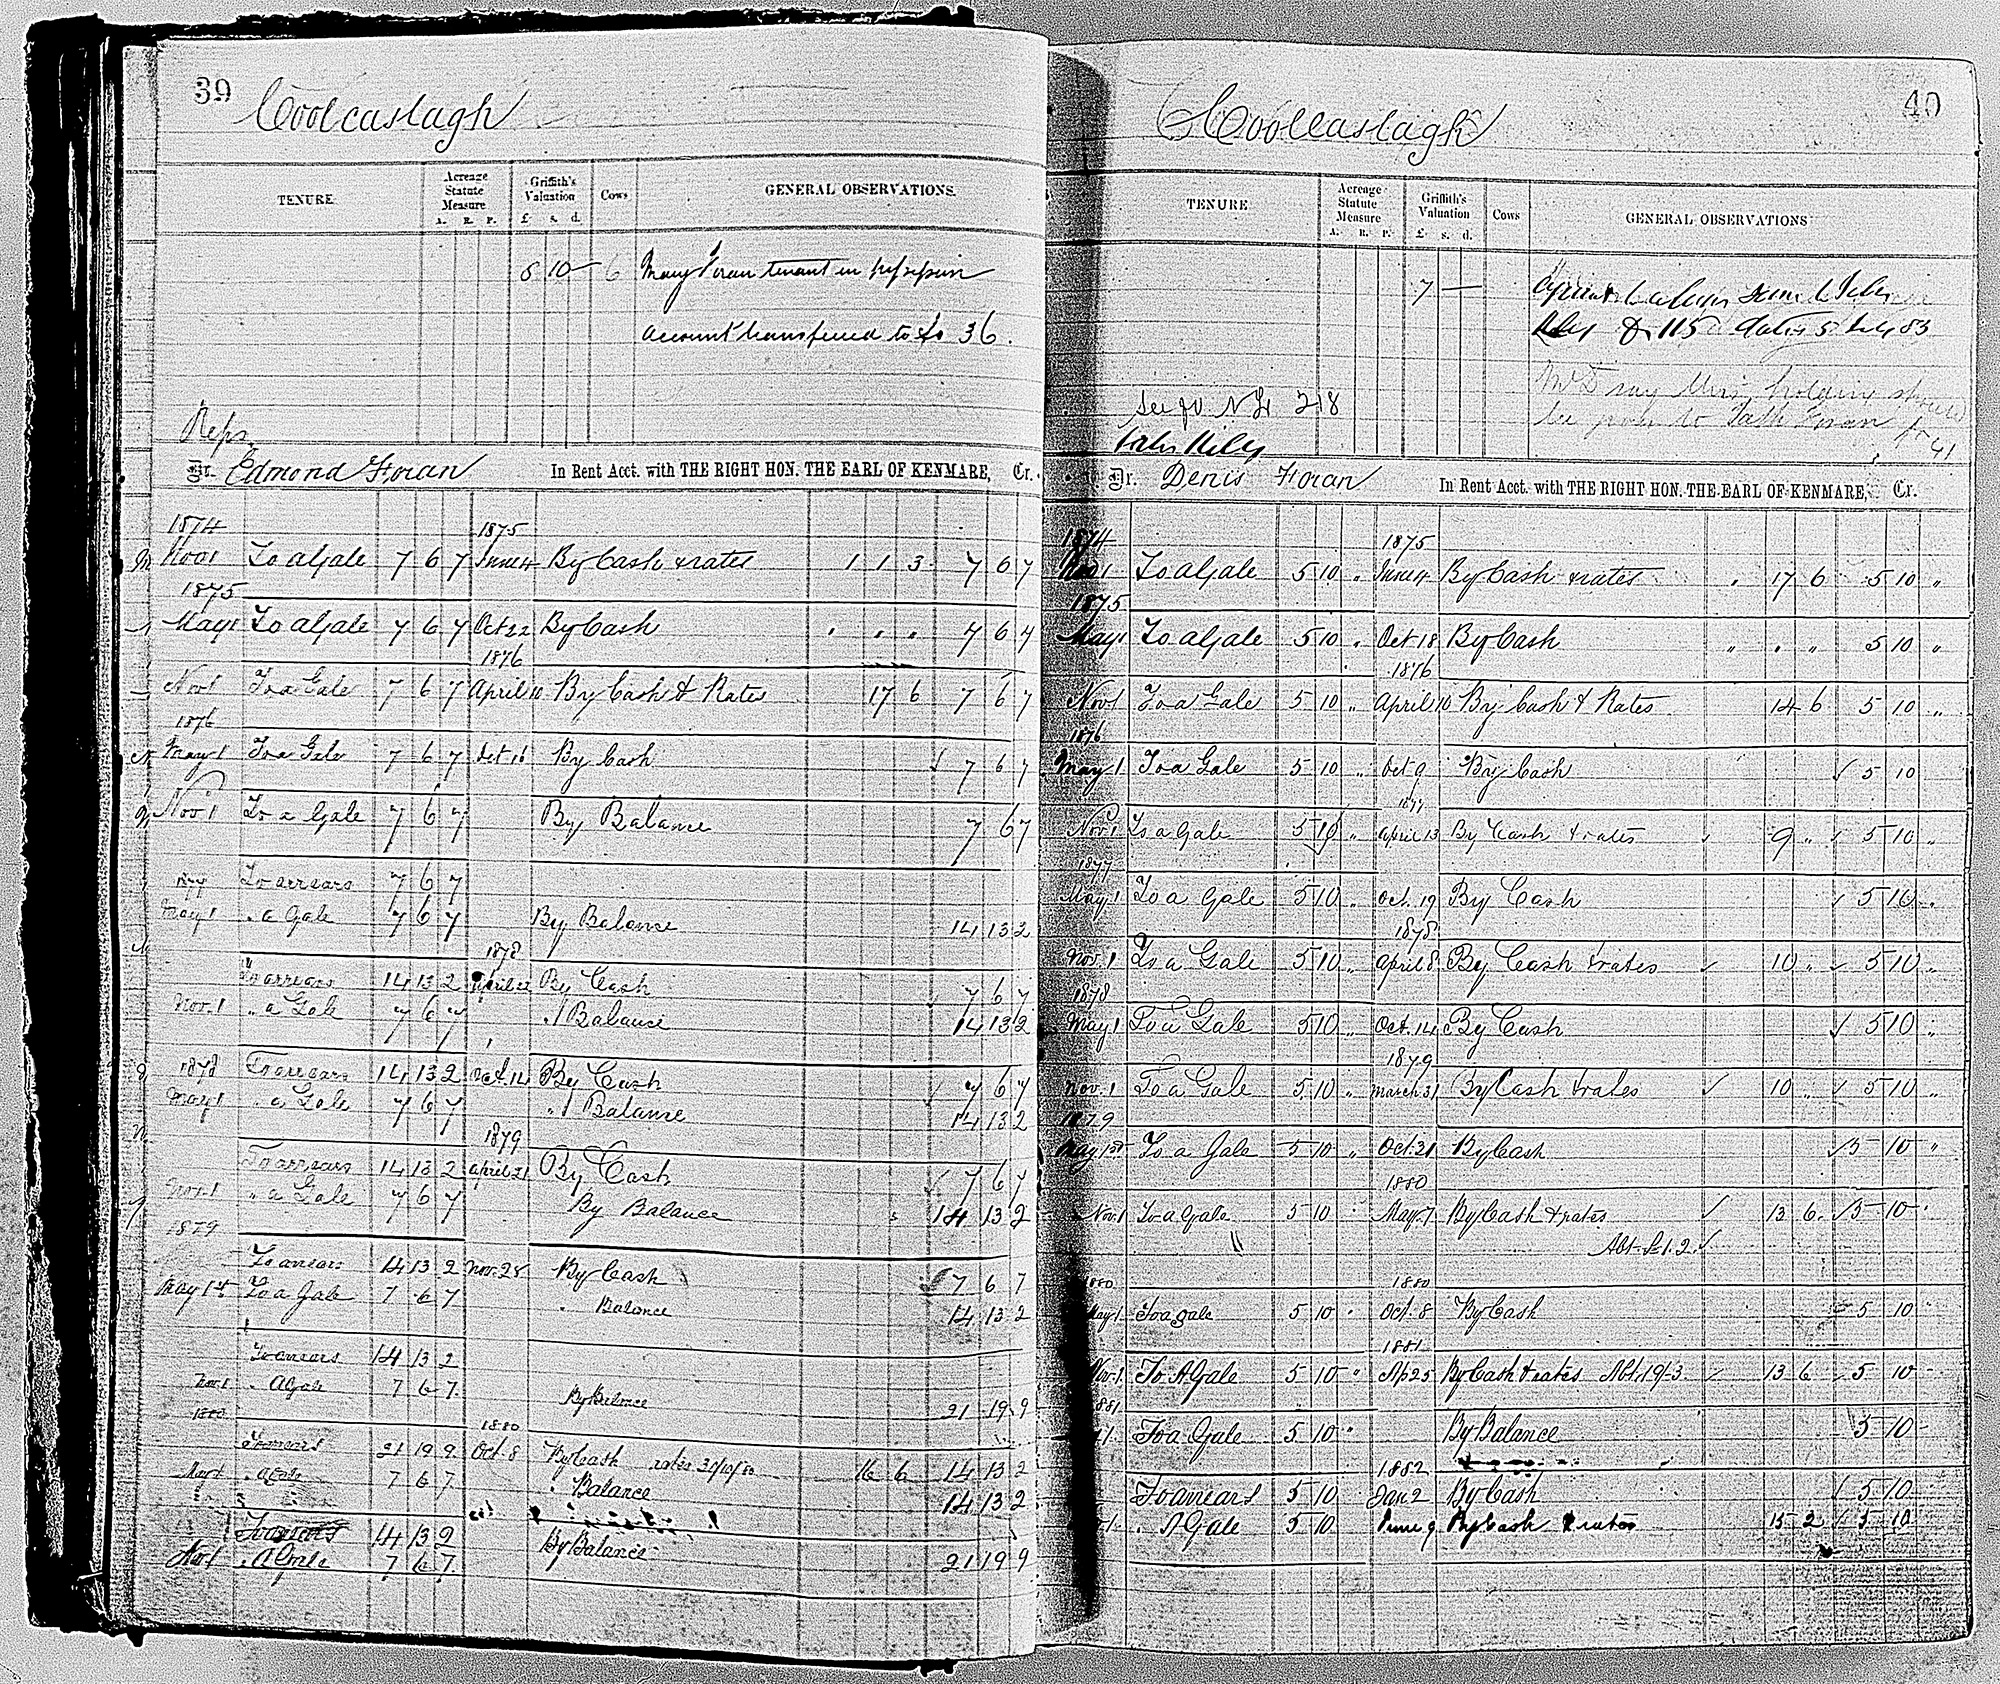 39
Coolcaslagh
TENURE
Acreage Statute Measure
A. R. P.
Griffith's Valuation
£ s. d.
Cows
GENERAL OBSERVATIONS.
5 10 — 6 Mary Foran tenant in
account transferred to fo 36.
Reps.
Dr. Edmond Foran In Rent Acct. with THE RIGHT HON. THE EARL OF KENMARE, Cr.
1874 1875
Nov 1 To a Gale 7 6 7 June 4 By Cash & rates 1 1 3 7 6 7
1875
May 1 To a Gale 7 6 7 Oct 22 By Cash " " " 7 6 7
1876
Nov 1 To a Gale 7 6 7 April 10 By Cash & Rates 17 6 7 6 7
1876
May 1 To a Gale 7 6 7 Oct 16 By Cash 7 6 7
Nov 1 To a Gale 7 6 7 By Balance 7 6 7
1877 To arrears 7 6 7
May 1 " a Gale 7 6 7 By Balance 14 13 2
1878
To arrears 14 13 2 April 22 By Cash 7 6 7
Nov. 1 " a Gale 7 6 7 " Balance 14 13 2
1878 To arrears 14 13 2 Oct. 14 By Cash 7 6 7
May 1 " a Gale 7 6 7 " Balance 14 13 2
1879
To arrears 14 13 2 April 21 By Cash 7 6 7
Nov. 1 " a Gale 7 6 7 By Balance 14 13 2
1879
To arrears 14 13 2 Nov. 25 By Cash 7 6 7
May 1st To a Gale 7 6 7 " Balance 14 13 2
To arrears 14 13 2
Nov. 1 " A Gale 7 6 7 By Balance 21 19 9
1880 1880
To arrears 21 19 9 Oct 8 By Cash rates 16 6 14 13 2
May 1 " a Gale 7 6 7 " Balance 14 13 2
To arrears 14 13 2
Nov 1 " A Gale 7 6 7 By Balance 21 19 9
40
Coolcaslagh
TENURE
Acreage Statute Measure
A. R. P.
Griffith's Valuation
£ s. d.
Cows
GENERAL OBSERVATIONS
7 —
115 83
holding should
be given to Path Foran fo 41
See fo N Lr 218
John Riley
Dr. Denis Foran In Rent Acct. with THE RIGHT HON. THE EARL OF KENMARE, Cr.
1874 1875
Nov 1 To a Gale 5 10 " June 4 By Cash & rates " 17 6 5 10 "
1875
May 1 To a Gale 5 10 " Oct 18 By Cash " " " 5 10 "
1876
Nov 1 To a Gale 5 10 " April 10 By Cash & Rates 14 6 5 10 "
1876
May 1 To a Gale 5 10 " Oct 9 By Cash 5 10
1877
Nov. 1 To a Gale 5 10 " April 13 By Cash & rates 9 " 5 10 "
1877
May 1 To a Gale 5 10 " Oct. 19 By Cash 5 10 "
1878
Nov. 1 To a Gale 5 10 " April 8 By Cash & rates 10 " 5 10 "
1878
May 1 To a Gale 5 10 " Oct. 14 By Cash 5 10 "
1879
Nov. 1 To a Gale 5 10 " March 31 By Cash & rates 10 " 5 10 "
1879
May 1st To a Gale 5 10 " Oct. 21 By Cash 5 10 "
1880
Nov. 1 To a Gale 5 10 " May 7 By Cash & rates 13 6 5 10 "
1880 1880
May 1 To a gale 5 10 " Oct. 8 By Cash 5 10 "
1881
Nov. 1 To A Gale 5 10 " Ap 25 By Cash & rates 13 6 5 10 "
1881
To a Gale 5 10 " By Balance 5 10 "
1882
To arrears 5 10 Jan 2 By Cash 5 10
" A Gale 5 10 June 9 By Cash & rates 15 2 5 10